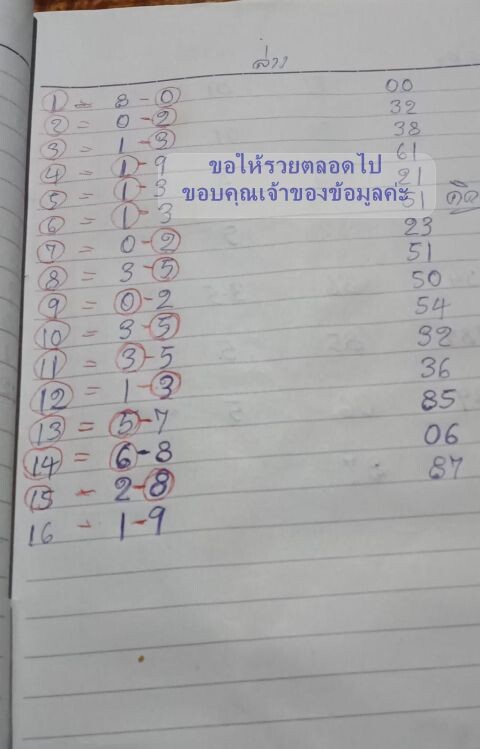 ล่าง
1 = 8-0 00
2 = 0-2 32
3 = 1-3 38
4 = 1-9 61
5 = 1-3 21
6 = 1-3 51
7 = 0-2 23
8 = 3-5 51
9 = 0-2 50
10 = 3-5 54
11 = 3-5 32
12 = 1-3 36
13 = 5-7 85
14 = 6-8 06
15 - 2-8 87
16 - 1-9
ขอให้รวยตลอดไป
ขอบคุณเจ้าของข้อมูลค่ะ